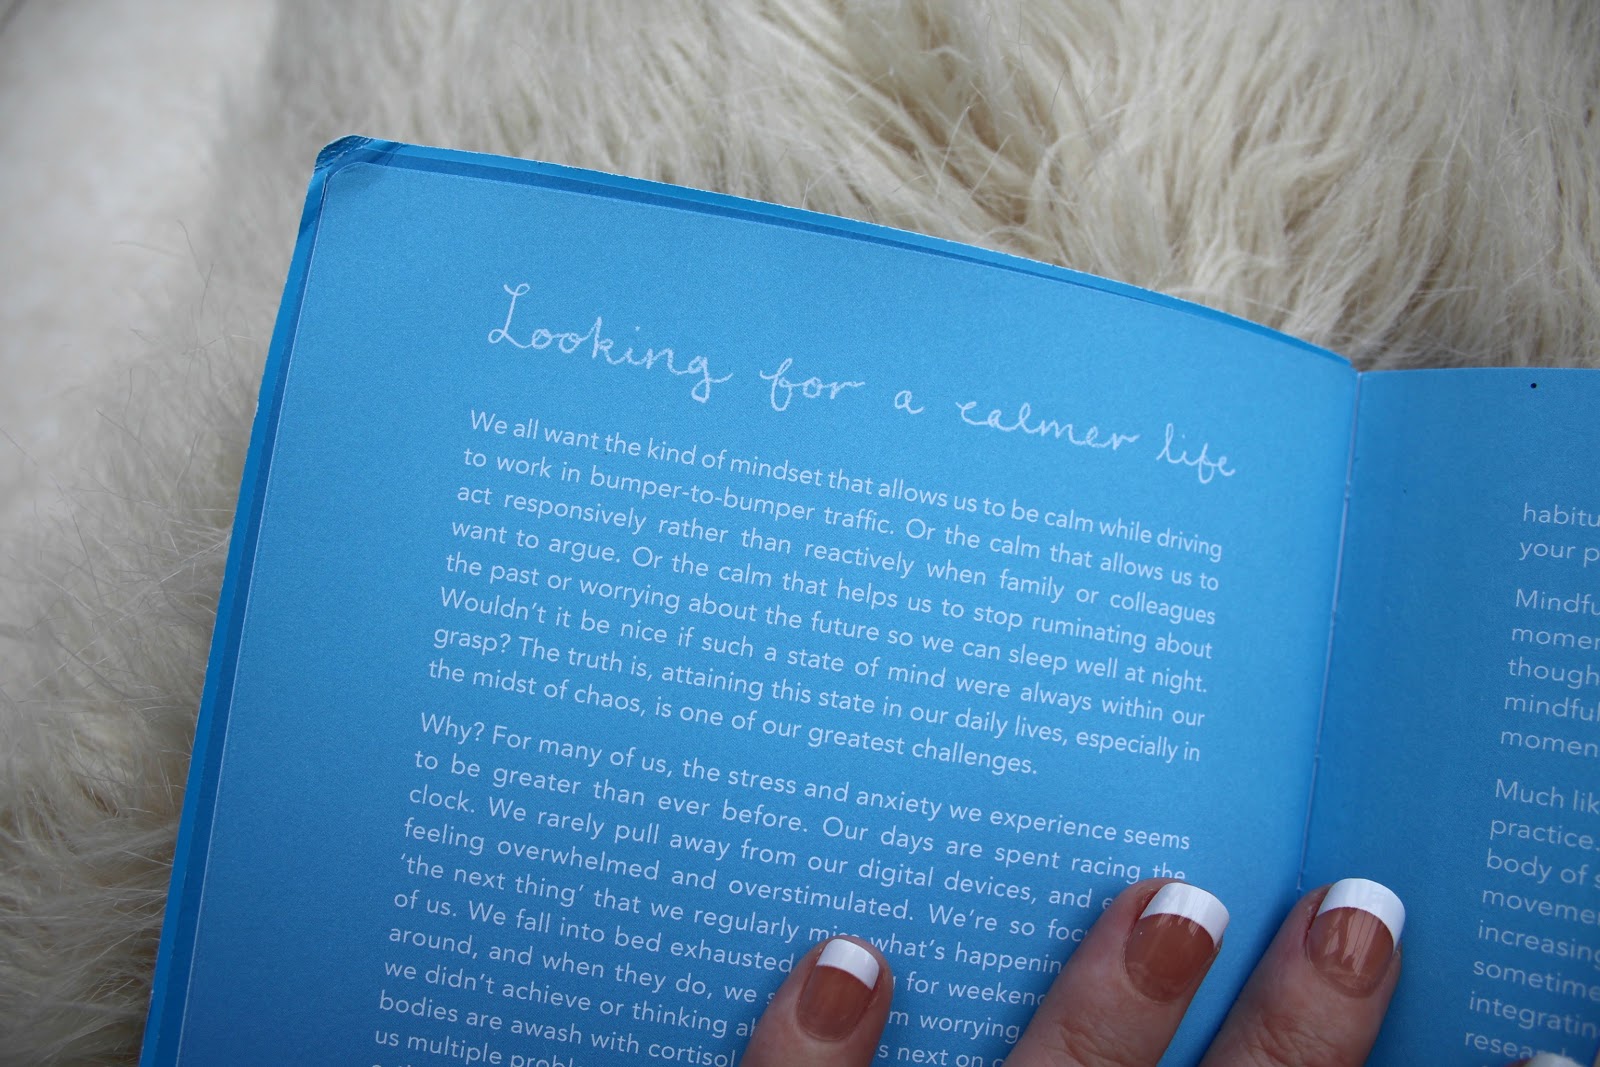 Looking for a calmer life
We all want the kind of mindset that allows us to be calm while driving
to work in bumper-to-bumper traffic. Or the calm that allows us to
act responsively rather than reactively when family or colleagues
want to argue. Or the calm that helps us to stop ruminating about
the past or worrying about the future so we can sleep well at night.
Wouldn't it be nice if such a state of mind were always within our
grasp? The truth is, attaining this state in our daily lives, especially in
the midst of chaos, is one of our greatest challenges.
Why? For many of us, the stress and anxiety we experience seems
to be greater than ever before. Our days are spent racing the
clock. We rarely pull away from our digital devices, and
feeling overwhelmed and overstimulated. We're so
'the next thing' that we regularly miss what's
of us. We fall into bed exhausted for
around, and when they do, we worrying
we didn't achieve or thinking next on
bodies are awash with cortisol
us multiple
your
Mindfu
momen
though
mindful
momen
Much lik
practice.
body of s
movemen
increasing
sometime
integratin